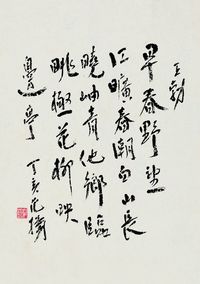 王勃
早春野望
江曠春潮白山長
曉岫青他鄉臨
眺極花柳映
邊亭
丁亥范